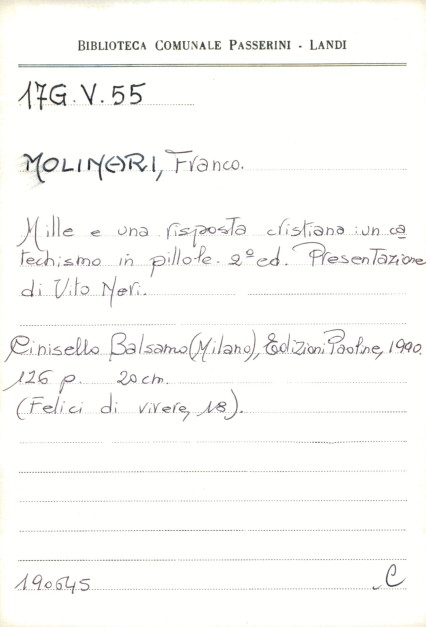 BIBLIOTECA COMUNALE PASSERINI - LANDI
17G.V.55
MOLINARI, Franco.
Mille e una risposta cristiana : un ca
techismo in pillole. 2ª ed. Presentazione
di Vito Neri.
Cinisello Balsamo (Milano), Edizioni Paoline, 1990.
126 p. 20 cm.
(Felici di vivere, 18).
190645 C